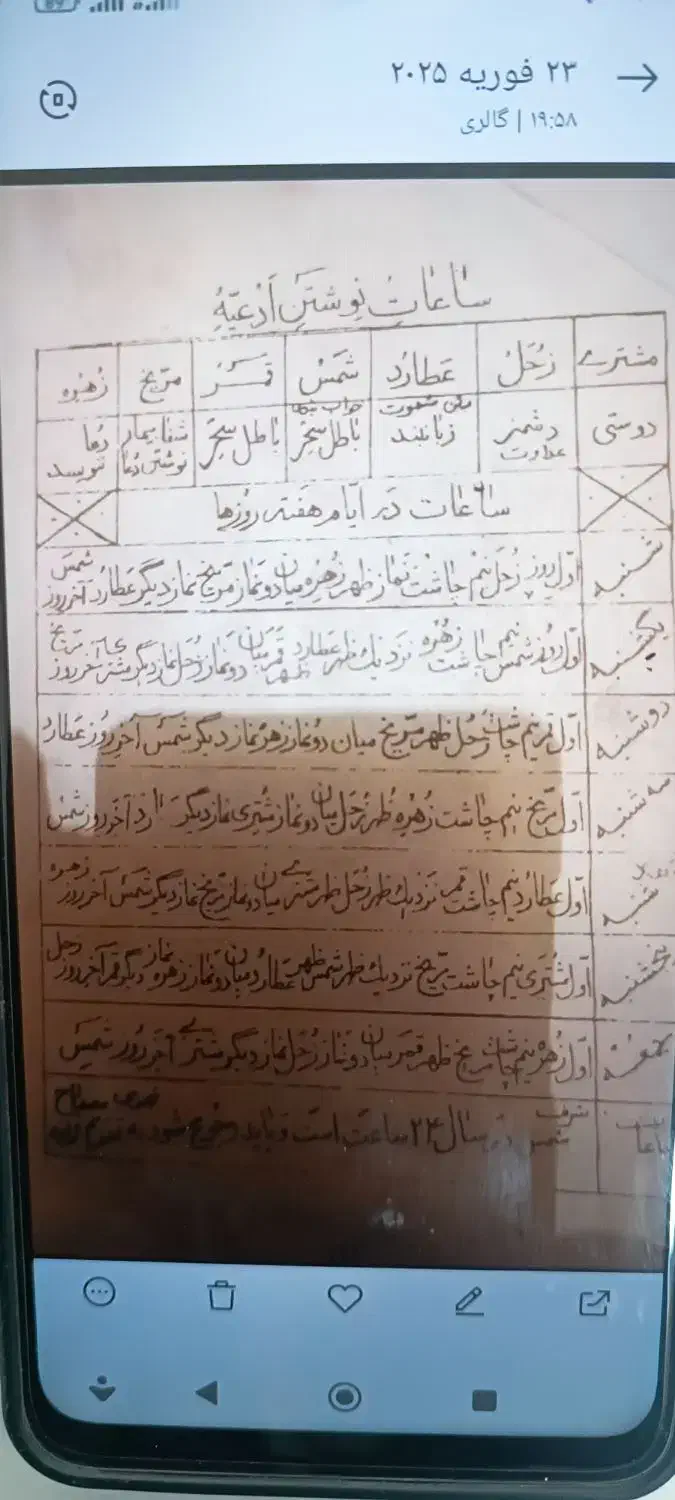 ۲۳ فوریه ۲۰۲۵
۱۹:۵۸ | گالری
ساعات نوشتن ادعیه
مشتری زحل عطارد شمس قمر مریخ زهره
دوستی دشمنی عداوت زبانبند باطل سحر باطل سحر شفا بیمار نوشتن دعا دعا نویسد
ساعات در ایام هفته روزها
شنبه اول روز زحل نیم چاشت نماز ظهر زهره میان دو نماز مریخ نماز دیگر عطارد آخر روز شمس
یکشنبه اول روز شمس نیم چاشت زهره نزدیک ظهر عطارد ظهر قمر میان دو نماز زحل نماز دیگر مشتری آخر روز مریخ
دوشنبه اول قمر نیم چاشت زحل ظهر مریخ میان دو نماز زهره نماز دیگر شمس آخر روز عطارد
سه شنبه اول مریخ نیم چاشت زهره ظهر زحل میان دو نماز مشتری نماز دیگر آخر روز شمس
شنبه اول عطارد نیم چاشت قمر نزدیک ظهر زحل ظهر مشتری میان دو نماز مریخ نماز دیگر شمس آخر روز زهره
پنجشنبه اول مشتری نیم چاشت مریخ نزدیک ظهر شمس ظهر عطارد میان دو نماز زهره نماز دیگر قمر آخر روز زحل
جمعه اول زهره نیم چاشت مریخ ظهر قمر میان دو نماز زحل نماز دیگر مشتری آخر روز شمس
شرف شمس در سال ۲۴ ساعت است و باید شود